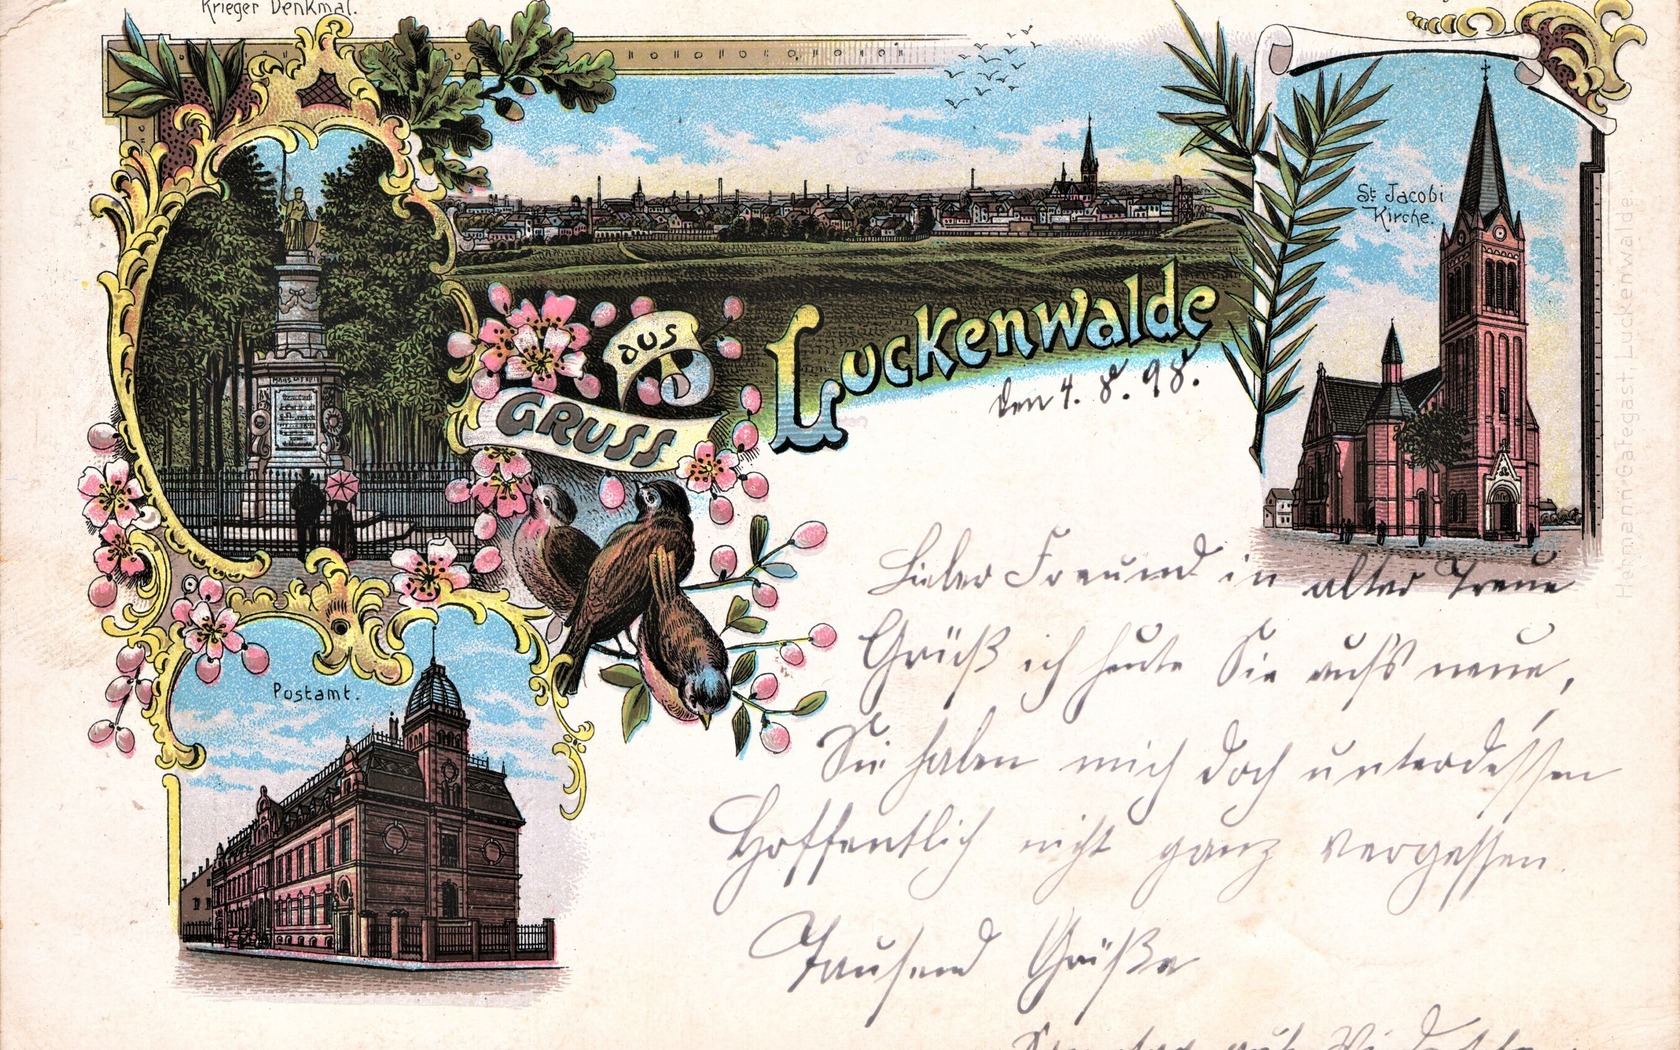 Krieger Denkmal.
St. Jacobi
Kirche.
Gruss
aus
Luckenwalde
den 4. 8. 98.
Hermann Gategast, Luckenwalde
Lieber Freund in alter Treue
Grüß ich heute Sie aufs neue,
Sie haben mich doch unterdessen
Hoffentlich nicht ganz vergessen.
Postamt.
Tausend Grüße